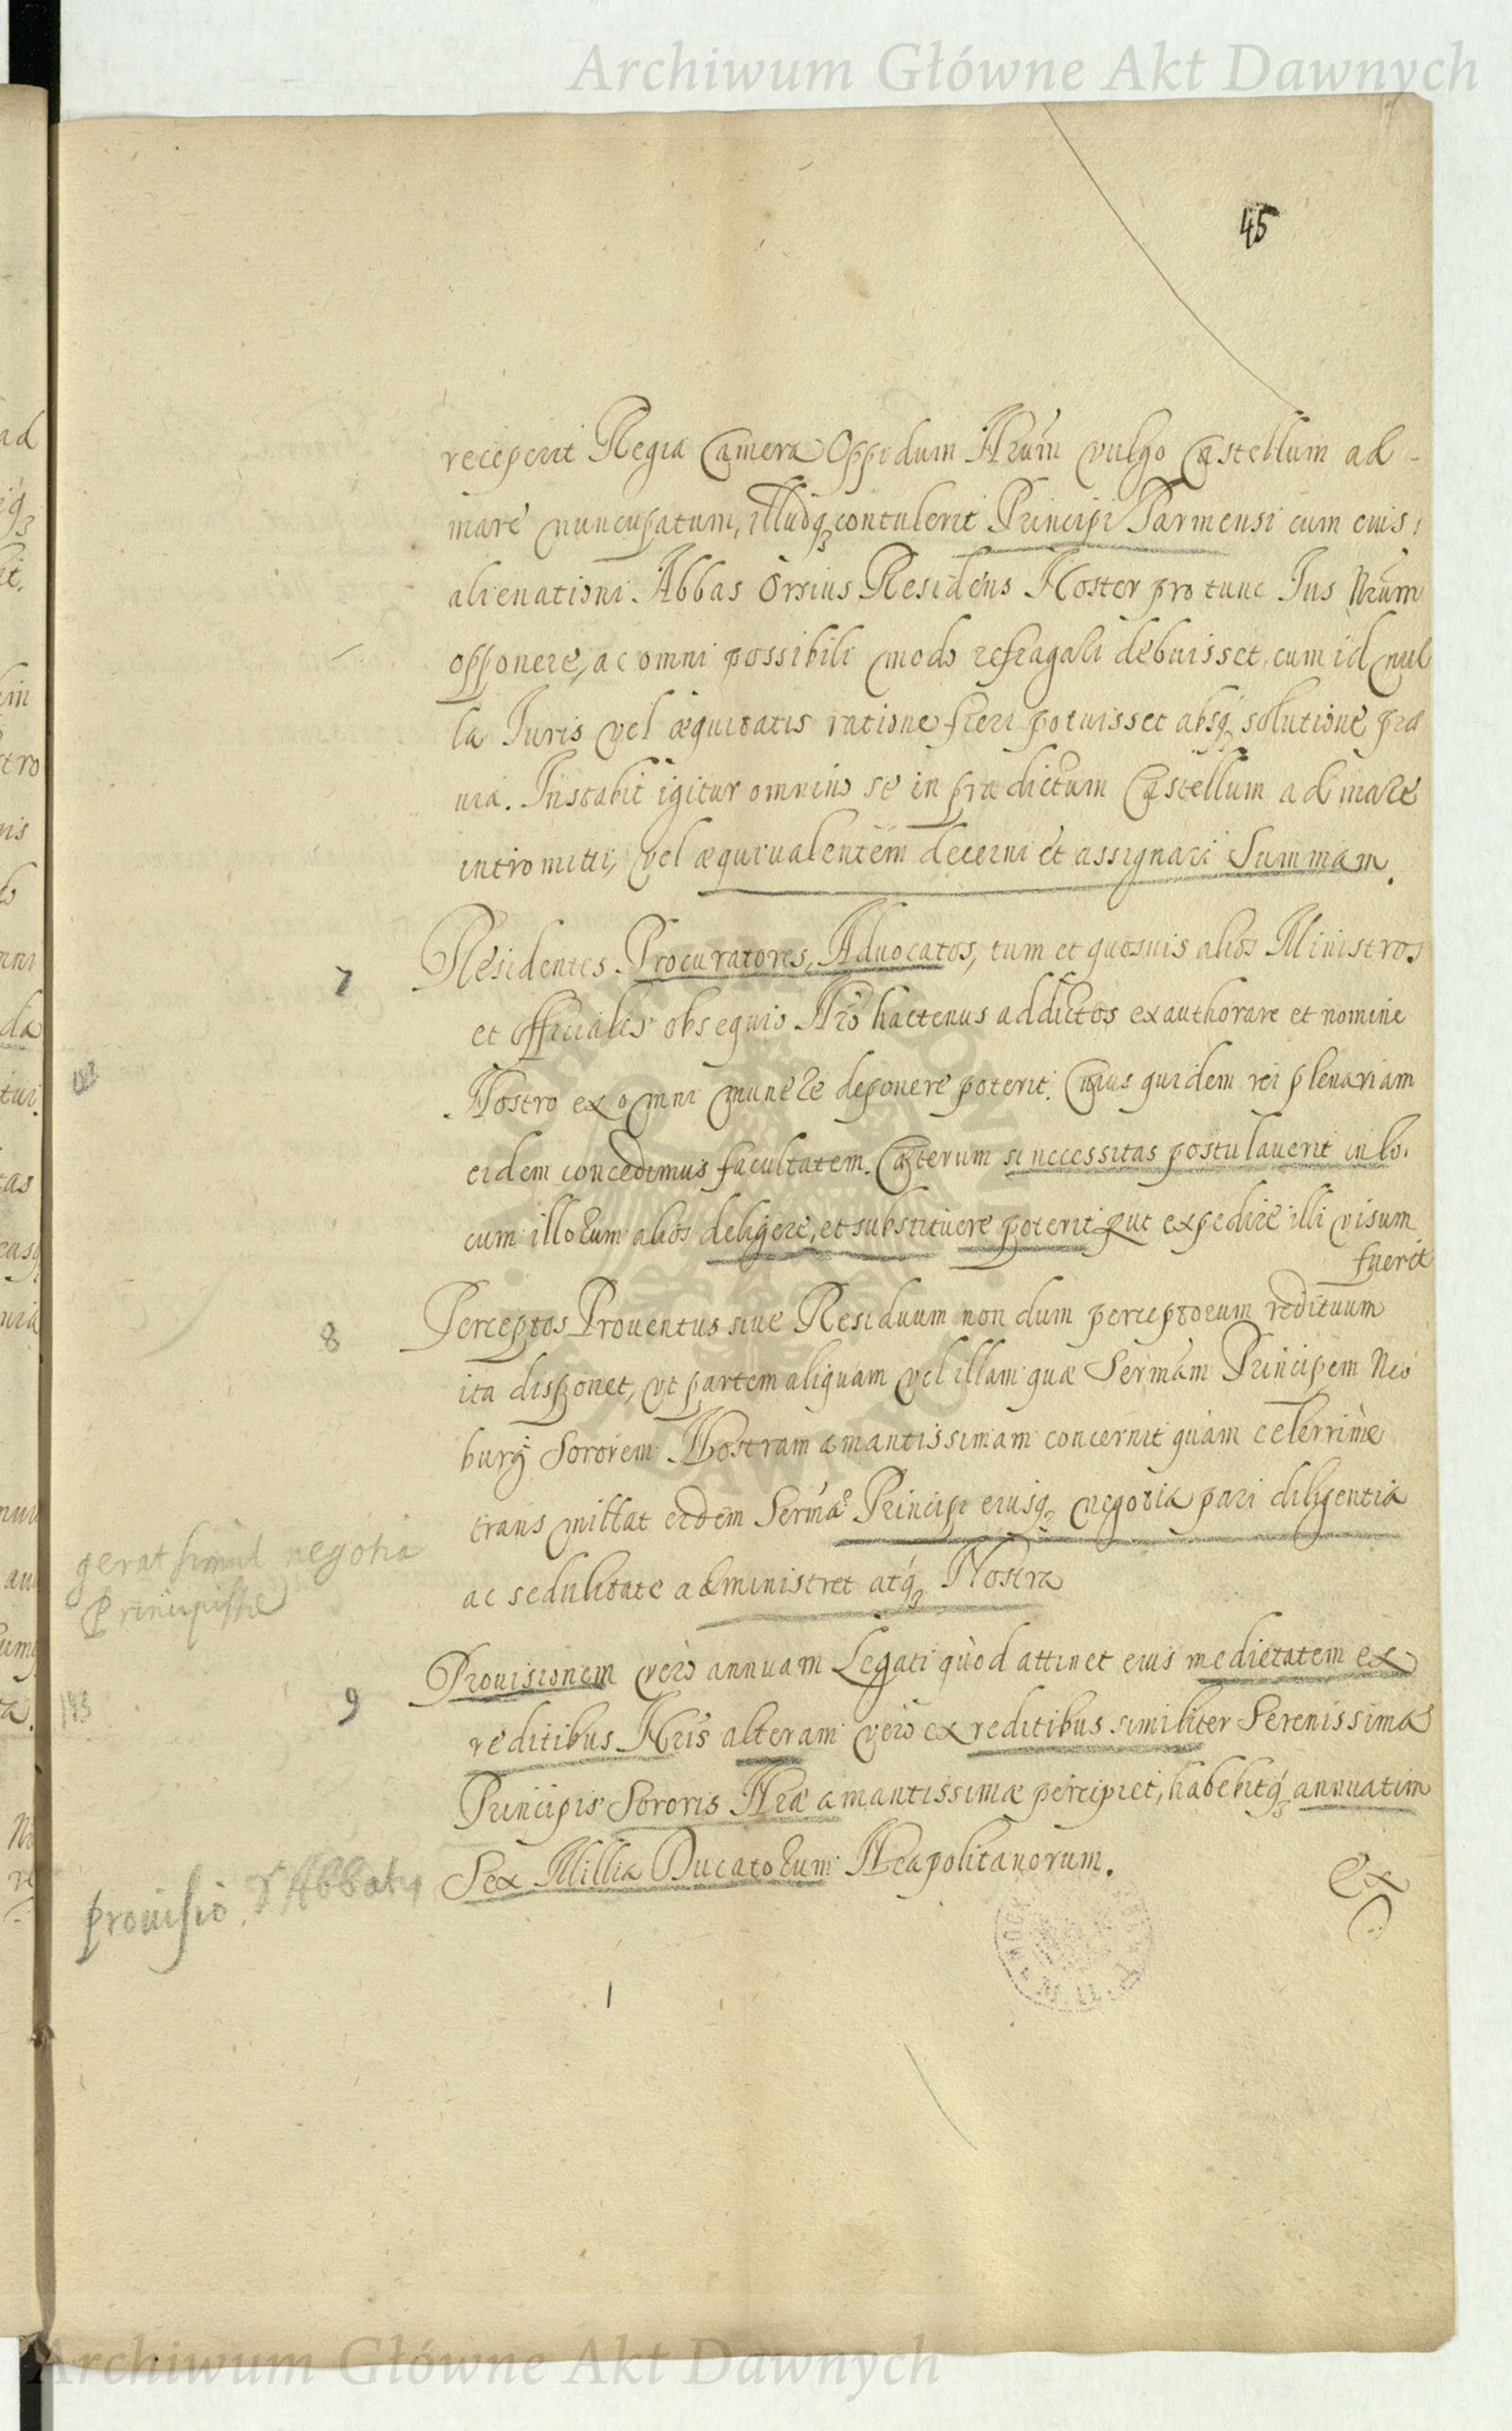 Archiwum Główne Akt Dawnych
45
receperit Regia Camera Oppidum Nrūm vulgo Castellum ad
mare nuncupatum, illudq₃ contulerit Principi Parmensi cum cuius
alienationi Abbas Orsius Residens Noster pro tunc Ius Nrūm
opponere, ac omni possibili modo refragari debuisset, cum id nul
la Iuris vel æquitatis ratione fieri potuisset absq₃ solutione præ
uia. Instabit igitur omnino se in prædictum Castellum ad mare
intromitti, vel æquiualentem decerni et assignari Summam.
7 Residentes Procuratores, Aduocatos, tum et quosuis alios Ministros
et Officiales obsequio Nrō hactenus addictos exauthorare et nomine
Nostro ex omni munere deponere poterit. Cuius quidem rei plenariam
eidem concedimus facultatem. Cæterum si necessitas postulauerit in lo.
cum illorum alios deligere, et substituere poterit put expedire illi visum
fuerit
8 Perceptos Prouentus siue Residuum non dum perceptorum redituum
ita disponet, vt partem aliquam vel illam quæ Sermām Principem Neo
burg̃ Sororem Nostram amantissimam concernit quàm celerrimè
transmittat eidem Sermāe Principi eiusq₃ negotia pari diligentia
ac sedulitate administret atq₃ Nostra
gerat simul negotia
Principisse
9 Prouisionem verò annuam Legati quòd attinet eius medietatem ex
reditibus Nrīs alteram verò ex reditibus similiter Serenissimæ
Principis Sororis Nræ amantissimæ percipiet, habebitq₃ annuatim
Sex Millia Ducatorum Neapolitanorum.
prouisio Abbatis
Ex
Archiwum Główne Akt Dawnych